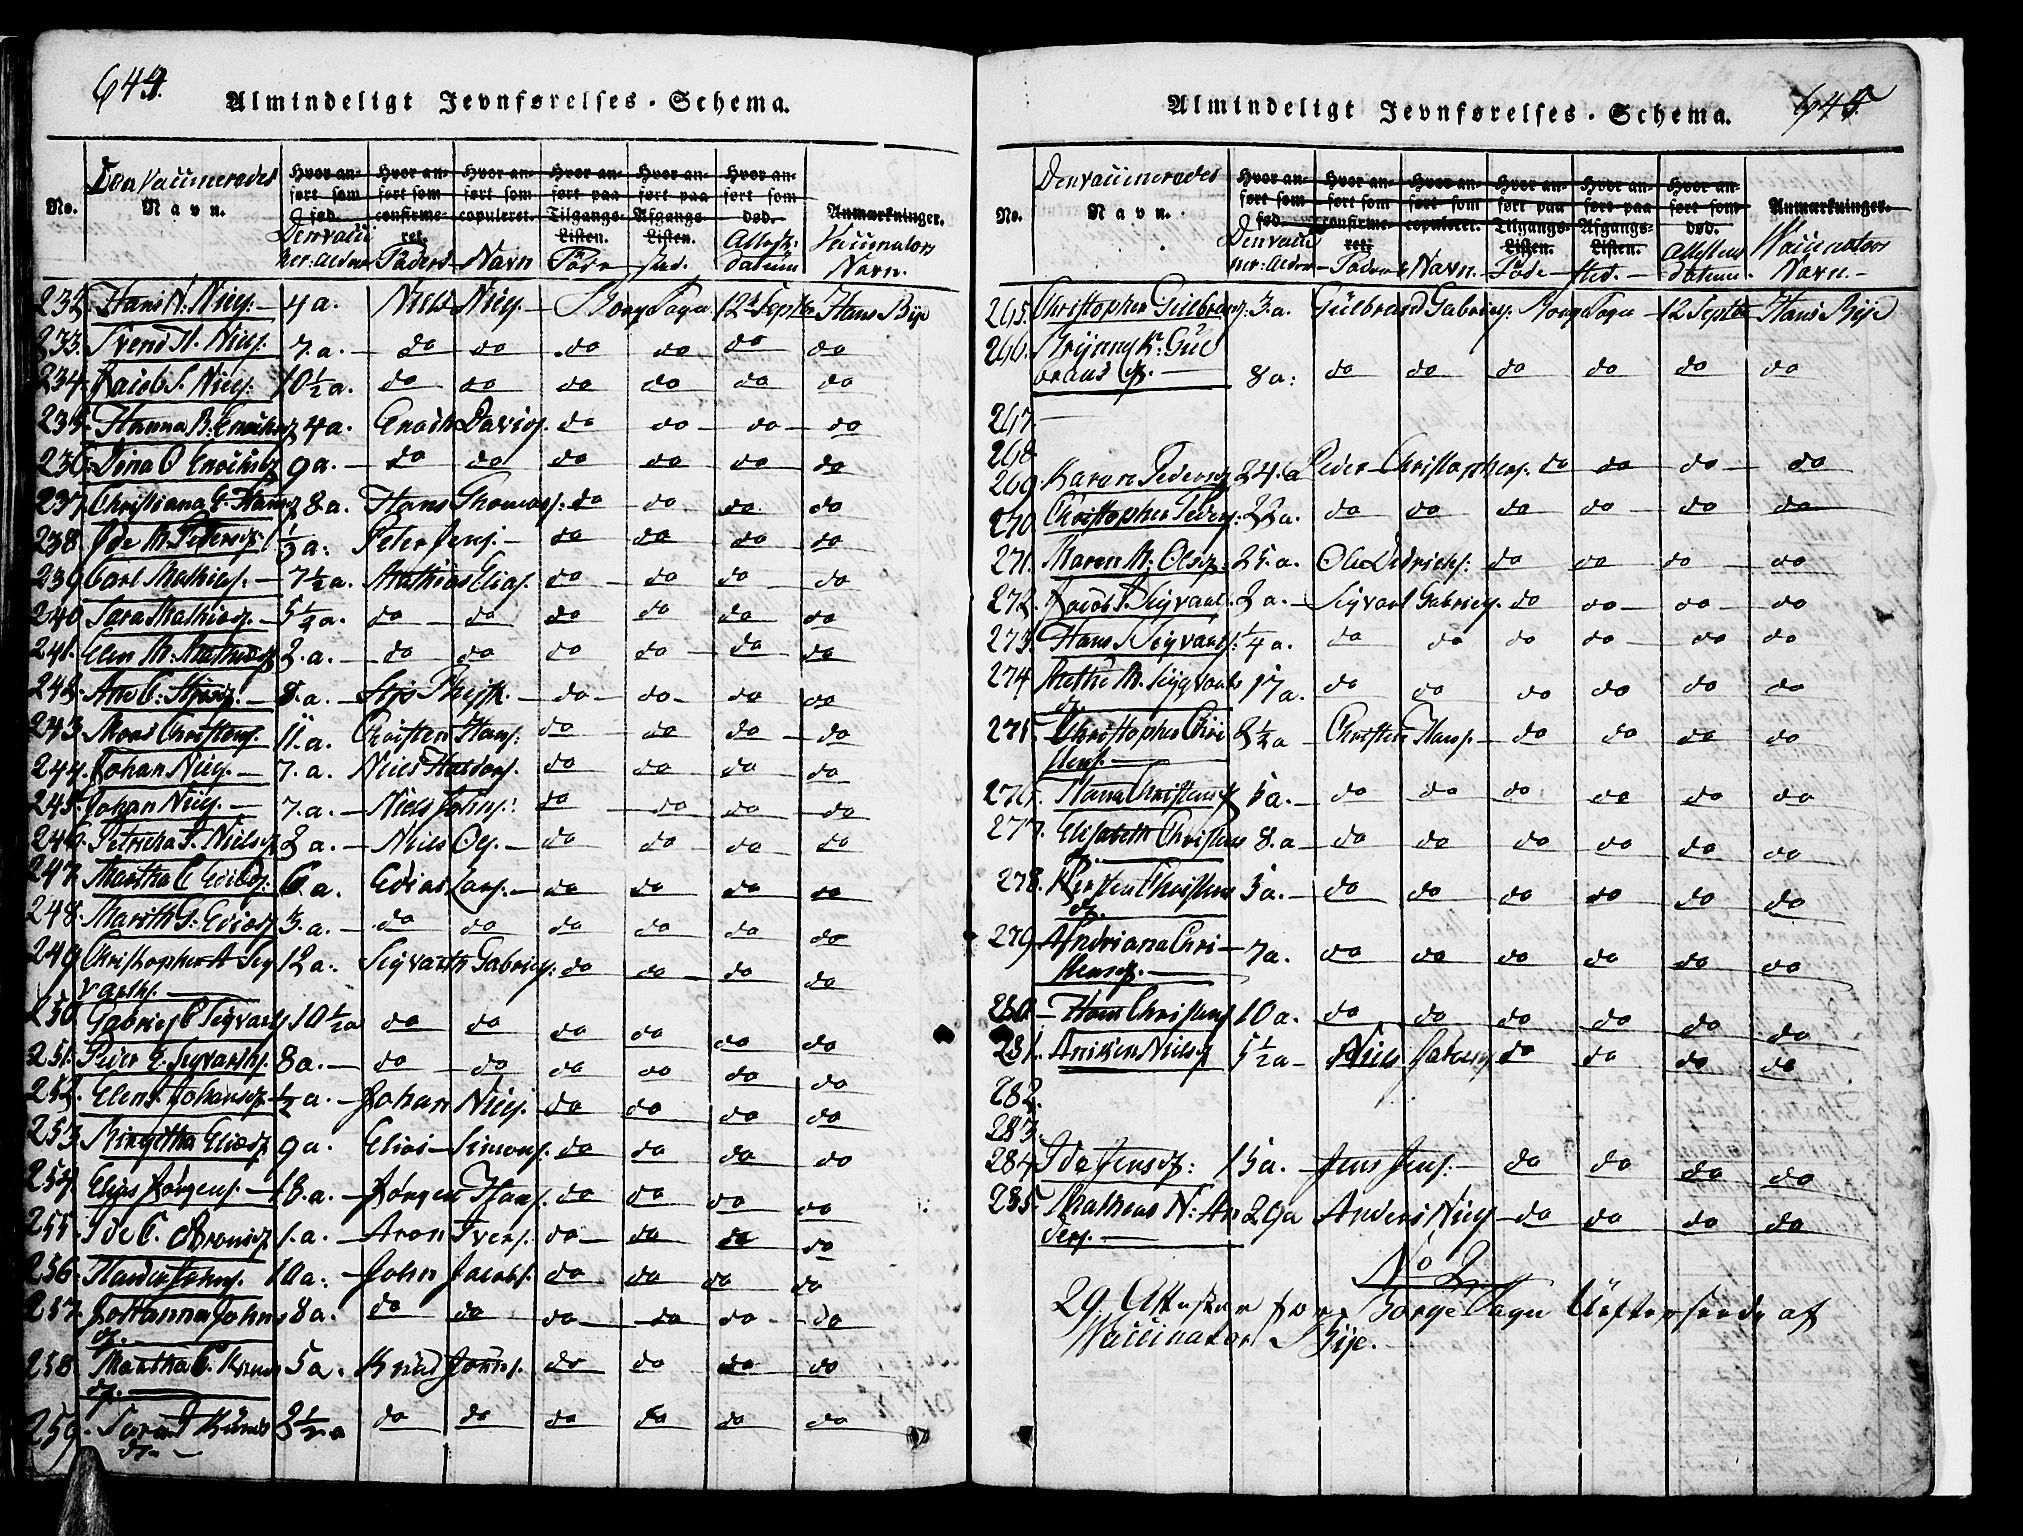 644.
Almindeligt Jevnførelses-Schema.
No. Den Vaccinerades Navn. Hvor anført som fød. Hvor anført som confirmeret. Hvor anført som copuleret. Hvor anført paa Tilgangs-Listen. Hvor anført paa Afgangs-Listen. Hvor anført som død. Anmærkninger.
Den vacciner: Alder Faders Navn Føde sted. Attest: datum Vaccinators Navn.
232. Hans N. Niels. 4 a. Niels Niels. Borge Sogn 12 Septbr Hans Bije
233. Svend H. Niels. 7. a. do do do do do do
234. Jacob S. Niels. 10 1/2 a. do do do do do do
235. Hanna B. Enochsd 4 a. Enoch Davids. do do do do
236. Dina C Enochsd 9 a. do do do do do do
237. Christiana E. Hansd 8 a. Hans Thomas. do do do do
238. Ide M. Pedersd. 1/3 a. Peter Jens. do do do do
239. Carl Mathias. 7 1/2 a. Mathias Elias. do do do do
240. Sara Mathiasd. 5 1/4 a. do do do do do do
241. Elen M. Mathiasd 2. a. do do do do do do
242. Ane C. 8. a. do do do do
243. Mons Christens. 11. a. Christen Hans. do do do do
244. Johan Niels. 7. a. Niels do do do do
245. Johan Niels. 7. a. Niels Johns. do do do do
246. Petricha S. Nielsd 2 a. Niels Ols. do do do do
247. Martha C Eliasd. 6. a. Edias Lars. do do do do
248. Marith S. Ediasd 1/3. a. do do do do do do
249. Christopher A Sig 12 a. Sigvarth Gabriels. do do do do
varths.
250. Gabriel C Sigvarths 10 1/2 a do do do do do do
251. Peder E. Sigvarths. 8 a. do do do do do do
252. Elen S. Johansd. 1/2 a. Johan Niels. do do do do
253. Ringitha Eliasd 9 a. Elias Simons. do do do do
254. Elias Jørgens. 18. a. Jørgen Hans. do do do do
255. Ide C. Aronsd 1. a. Aron Ivers. do do do do
256. Johns. 10 a. John Jacobs. do do do do
257. Johanna Johns 8 a. do do do do do do
d.
258. Martha C. Knuds 5 a. Knud Johns. do do do do
d.
259. Sara Knuds 2 1/2 a do do do do do do
d.
645.
Almindeligt Jevnførelses-Schema.
No. Den vaccinerades Navn. Hvor anført som fød. Hvor anført som confirmeret. Hvor anført som copuleret. Hvor anført paa Tilgangs-Listen. Hvor anført paa Afgangs-Listen. Hvor anført som død. Anmærkninger.
Den vacciner: Alder Faders Navn. Føde sted. Attestens datum Vaccinators Navn.
265. Christopher Gulbrands. 3. a. Gulbrand Gabriels. Borge Sogn 12 Septbr Hans Bije
266. K. Gul
brandsd. 8 a. do do do do do do
267.
268
269 Karen Pedersd 24. a Peder Christophers. do do do do
270 Christopher Peders. 22 a. do do do do do do
271. Maren M. Olsd. 25. a. Ole Didrichs. do do do do
272. Jacob P. Sigvarts. 2 a. Sigvart Gabriels. do do do do
273. Hans Sigvarts. 1/4 a. do do do do do do
274 Methe M. Sigvarts 17 a. do do do do do do
d.
275. Christopher Chri 2 1/2 a Christen Hans. do do do do
stens.
276. Hana Christensd 5 a. do do do do do do
277. Elisabeth Christens 8. a do do do do do do
d.
278. Kirsten Christens 5 a. do do do do do do
d.
279. Andriana Chri 7 a. do do do do do do
stensd.
280. Hans Christens 10 a. do do do do do do
281. Aniken Nielsd 5 1/2 a Niels Jacobs do do do do
282.
283.
284. Ide Jensd. 15 a. Jens Jens. do do do do
285. Mathias N: An 29 a Anders Niels do do do do
ders.
No 2
29. Attester for Borge Sogn Udstersede af
Vaccinator Bije.